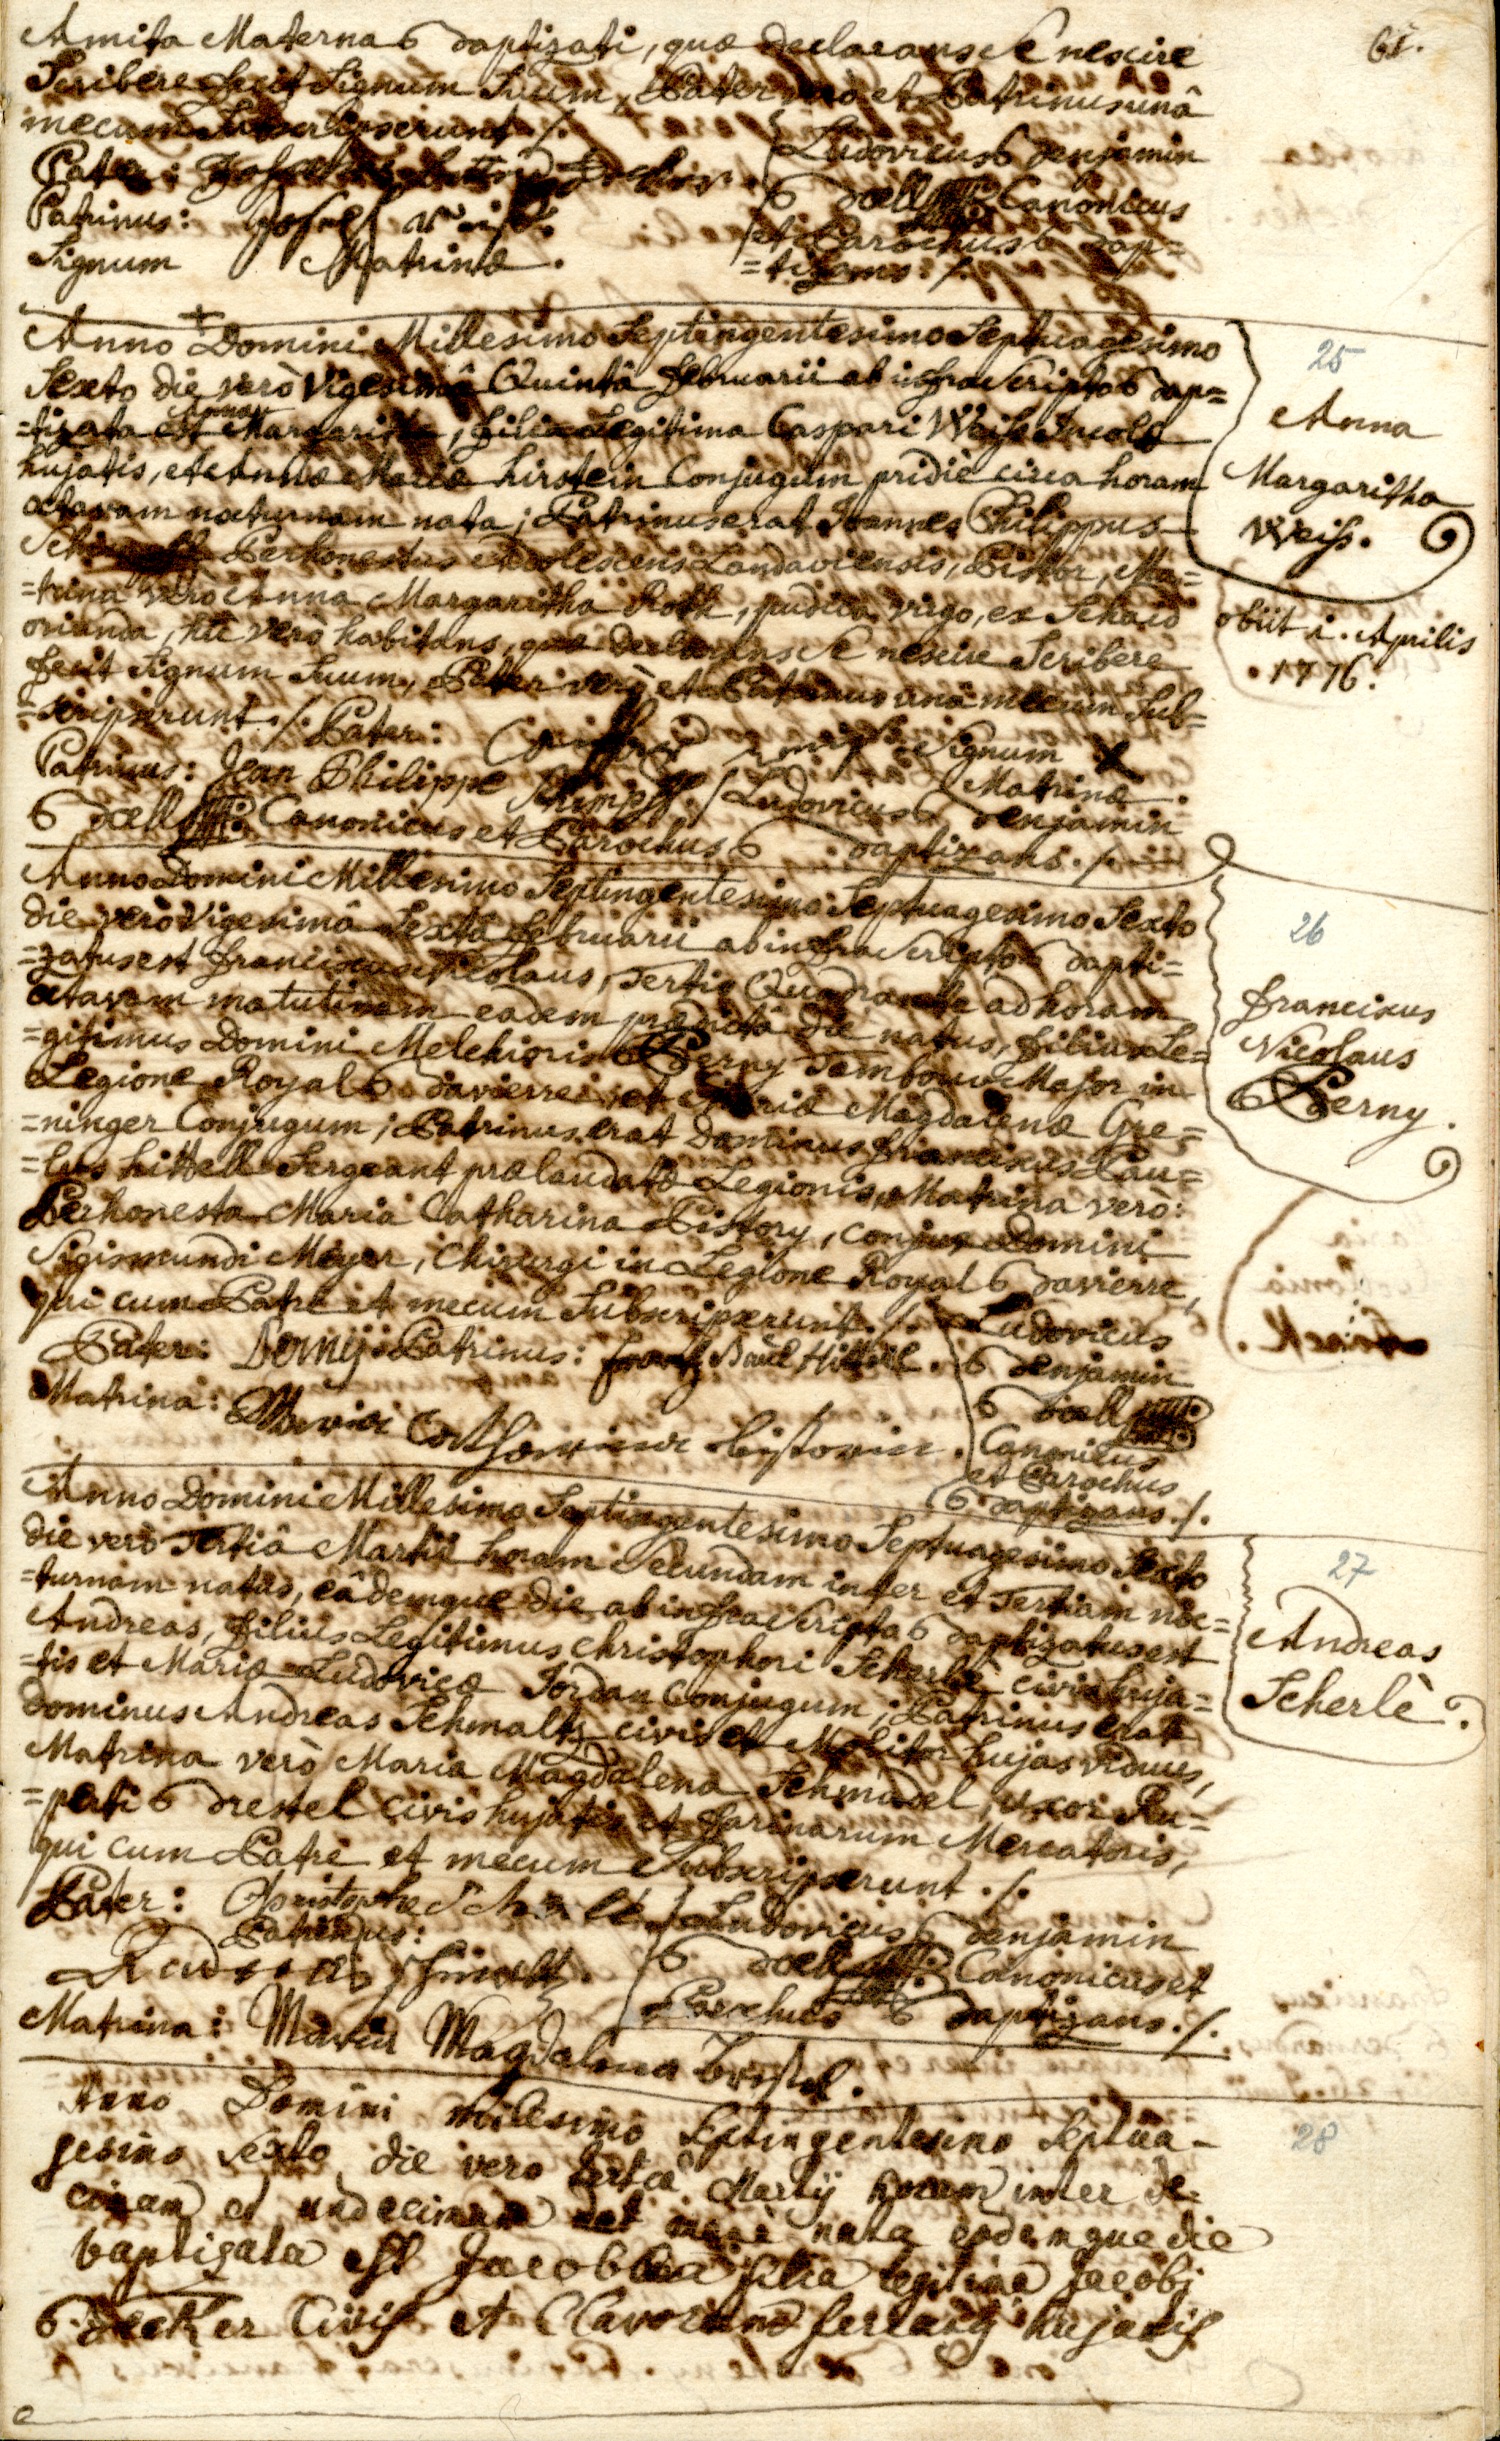 61.
Amita Materna Baptizati, quæ declarans se nescire
Scribere fecit Signum Suum, Pater verò et Patrinus unâ
mecum Subscripserunt ./.
Pater:
Ludovicus Benjamin
Patrinus: Joseph
Böell Canonicus
et Parochus Bap=
Signum Matrinæ.
=tizans. ./.
+
Anno Domini Millesimo Septingentesimo Septuagesimo
Sexto die verò Vigesimâ Quintâ Februarii ab infra Scripto Bap=
=tizata est Anna Margaritha, filia Legitima Caspari Weiss Incolæ
hujatis, et Annæ Mariæ hirstein Conjugum pridiè circa horam
octavam nocturnam nata; Patrinus erat Joannes Philippus
Perhonestus Adolescens Landaviensis, Pistor, Ma=
=trina verò Anna Margaritha Roth, pudica virgo, ex Schaid
oriunda, hic verò habitans, quæ declarans se nescire Scribere
fecit Signum Suum, Pater verò et Patrinus unâ mecum Sub=
=scripserunt ./. Pater:
Signum X
Matrinæ.
Patrinus: Jean Philippe Schimpff. Ludovicus Benjamin
Böell Canonicus et Parochus Baptizans. ./.
25
Anna
Margaritha
Weiss.
obiit 1. Aprilis
1776.
Anno Domini Millesimo Septingentesimo Septuagesimo Sexto
die verò Vigesimâ Sextâ Februarii ab infra Scripto Bapti=
=zatus est Franciscus Nicolaus, Tertio Quadrante ad horam
octavam matutinam eadem prædictâ die natus, filius Le=
=gitimus Domini Melchioris Berny Tambour Major in
Legione Royal Bavierre, et Mariæ Magdalenæ Gre=
=ninger Conjugum; Patrinus erat Dominus Franciscus Pau=
=lus hittell Sergeant prælaudatæ Legionis, Matrina verò:
Perhonesta Maria Catharina Pistory, conjux Domini
Sigismundi Meyer, Chirurgi in Legione Royal Bavierre,
qui cum Patre et mecum Subscripserunt. ./.
Pater: Berny Patrinus: frantz Paul Hittell.
Ludovicus
Benjamin
Matrina: Maria Catharina bistoria.
Böell
Canonicus
et Parochus
Baptizans. ./.
26
Franciscus
Nicolaus
Berny.
Anno Domini Millesimo Septingentesimo Septuagesimo Sexto
die verò Tertiâ Martii horam Secundam inter et Tertiam noc=
=turnam natus, eâdemque die ab infra Scripto Baptizatus est
Andreas, filius Legitimus Christophori Scherlè civis huja=
=tis et Mariæ Ludovicæ Jordan Conjugum; Patrinus erat
dominus Andreas Schmaltz civis et Molitor hujas viduus,
Matrina verò Maria Magdalena Schmadel, uxor Ru=
=perti Brestel civis hujatis et farinarum Mercatoris,
qui cum Patre et mecum Subscripserunt. ./.
Pater: Christophe
Ludovicus Benjamin
Patrinus:
Böell Canonicus et
Parochus Baptizans. ./.
Matrina: Maria Magdalena brestel.
27
Andreas
Scherlè.
Anno Domini milesimo Septingentesimo Septua-
gesimo Sexto die vero tertia Martij horam inter de-
cimam et undecimam nata eodemque die
baptizata est Jacobea filia legitima Jacobi
Becker Civis et Clavorum hujatis
28